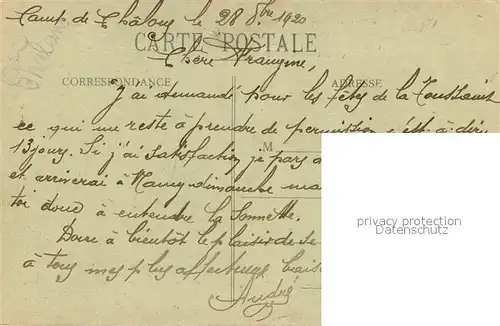 Camp de Châlons le 28 8bre 1920
CARTE POSTALE
Chère
CORRESPONDANCE
ADRESSE
J'ai demandé pour les fêtes de la Toussaint
ce qui me reste à prendre de permission c'est-à-dire
M
13 jours. Si j'ai satisfaction je pars
et arriverai à Nancy dimanche ma
toi donc à entendre la sonnette.
privacy protection
Datenschutz
Donc à bientôt le plaisir de se
à tous mes plus affectueux baise
André
Chalons